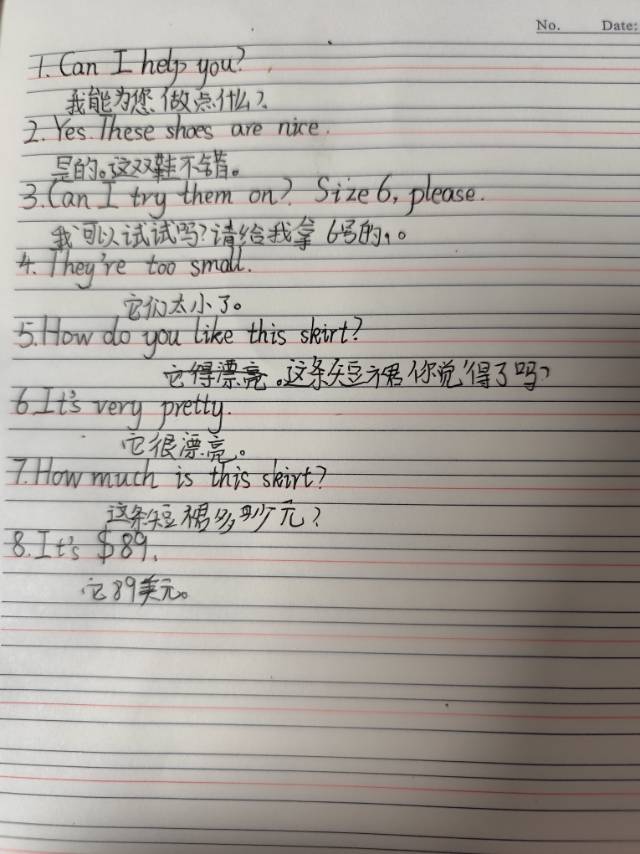 No. Date:
1. Can I help you?
我能为您做点什么?
2. Yes. These shoes are nice.
是的。这双鞋不错。
3. Can I try them on? Size 6, please.
我可以试试吗?请给我拿6号的,。
4. They're too small.
它们太小了。
5. How do you like this skirt?
它得漂亮。这条短裙你觉得了吗?
6. It's very pretty.
它很漂亮。
7. How much is this skirt?
这条短裙多少元?
8. It's $89.
它89美元。